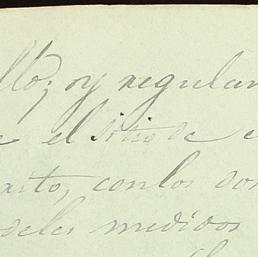 llo; oy regular
e el sitio de e
arto, con los do
deles medidos